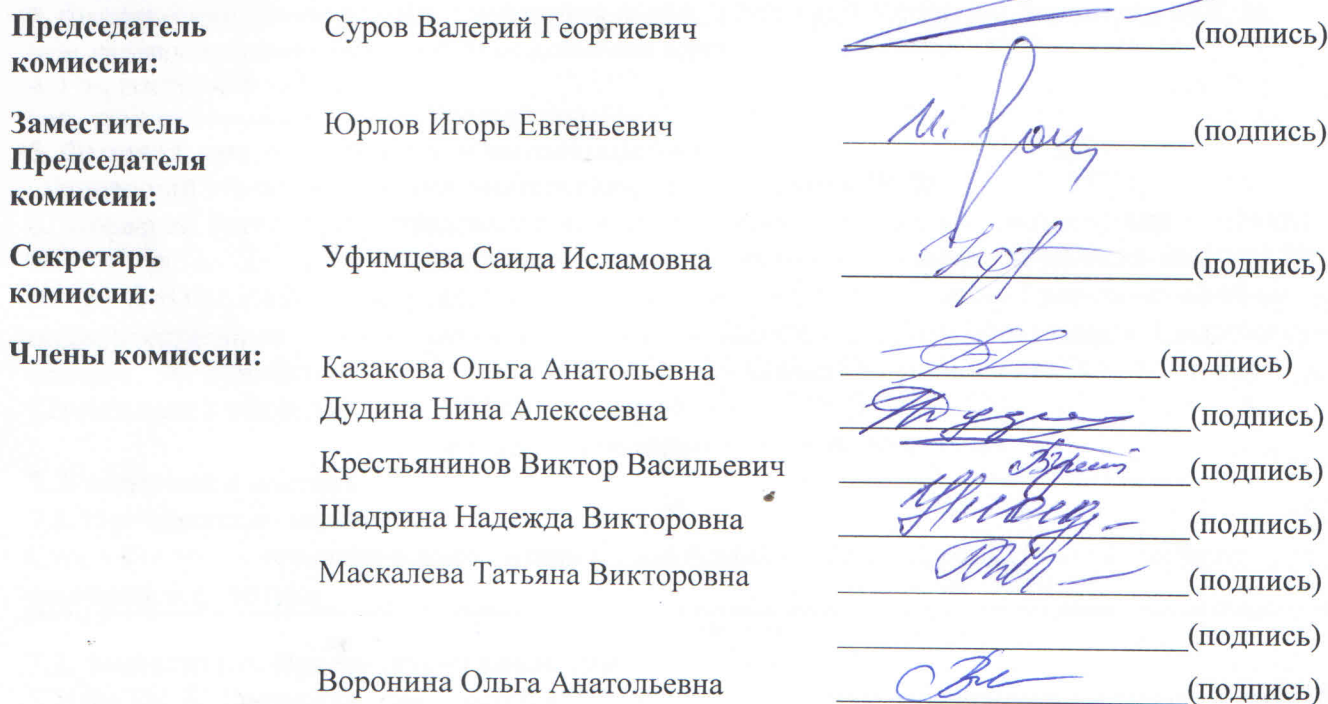 Председатель комиссии: Суров Валерий Георгиевич (подпись)
Заместитель Председателя комиссии: Юрлов Игорь Евгеньевич (подпись)
Секретарь комиссии: Уфимцева Саида Исламовна (подпись)
Члены комиссии: Казакова Ольга Анатольевна (подпись)
Дудина Нина Алексеевна (подпись)
Крестьянинов Виктор Васильевич (подпись)
Шадрина Надежда Викторовна (подпись)
Маскалева Татьяна Викторовна (подпись)
(подпись)
Воронина Ольга Анатольевна (подпись)